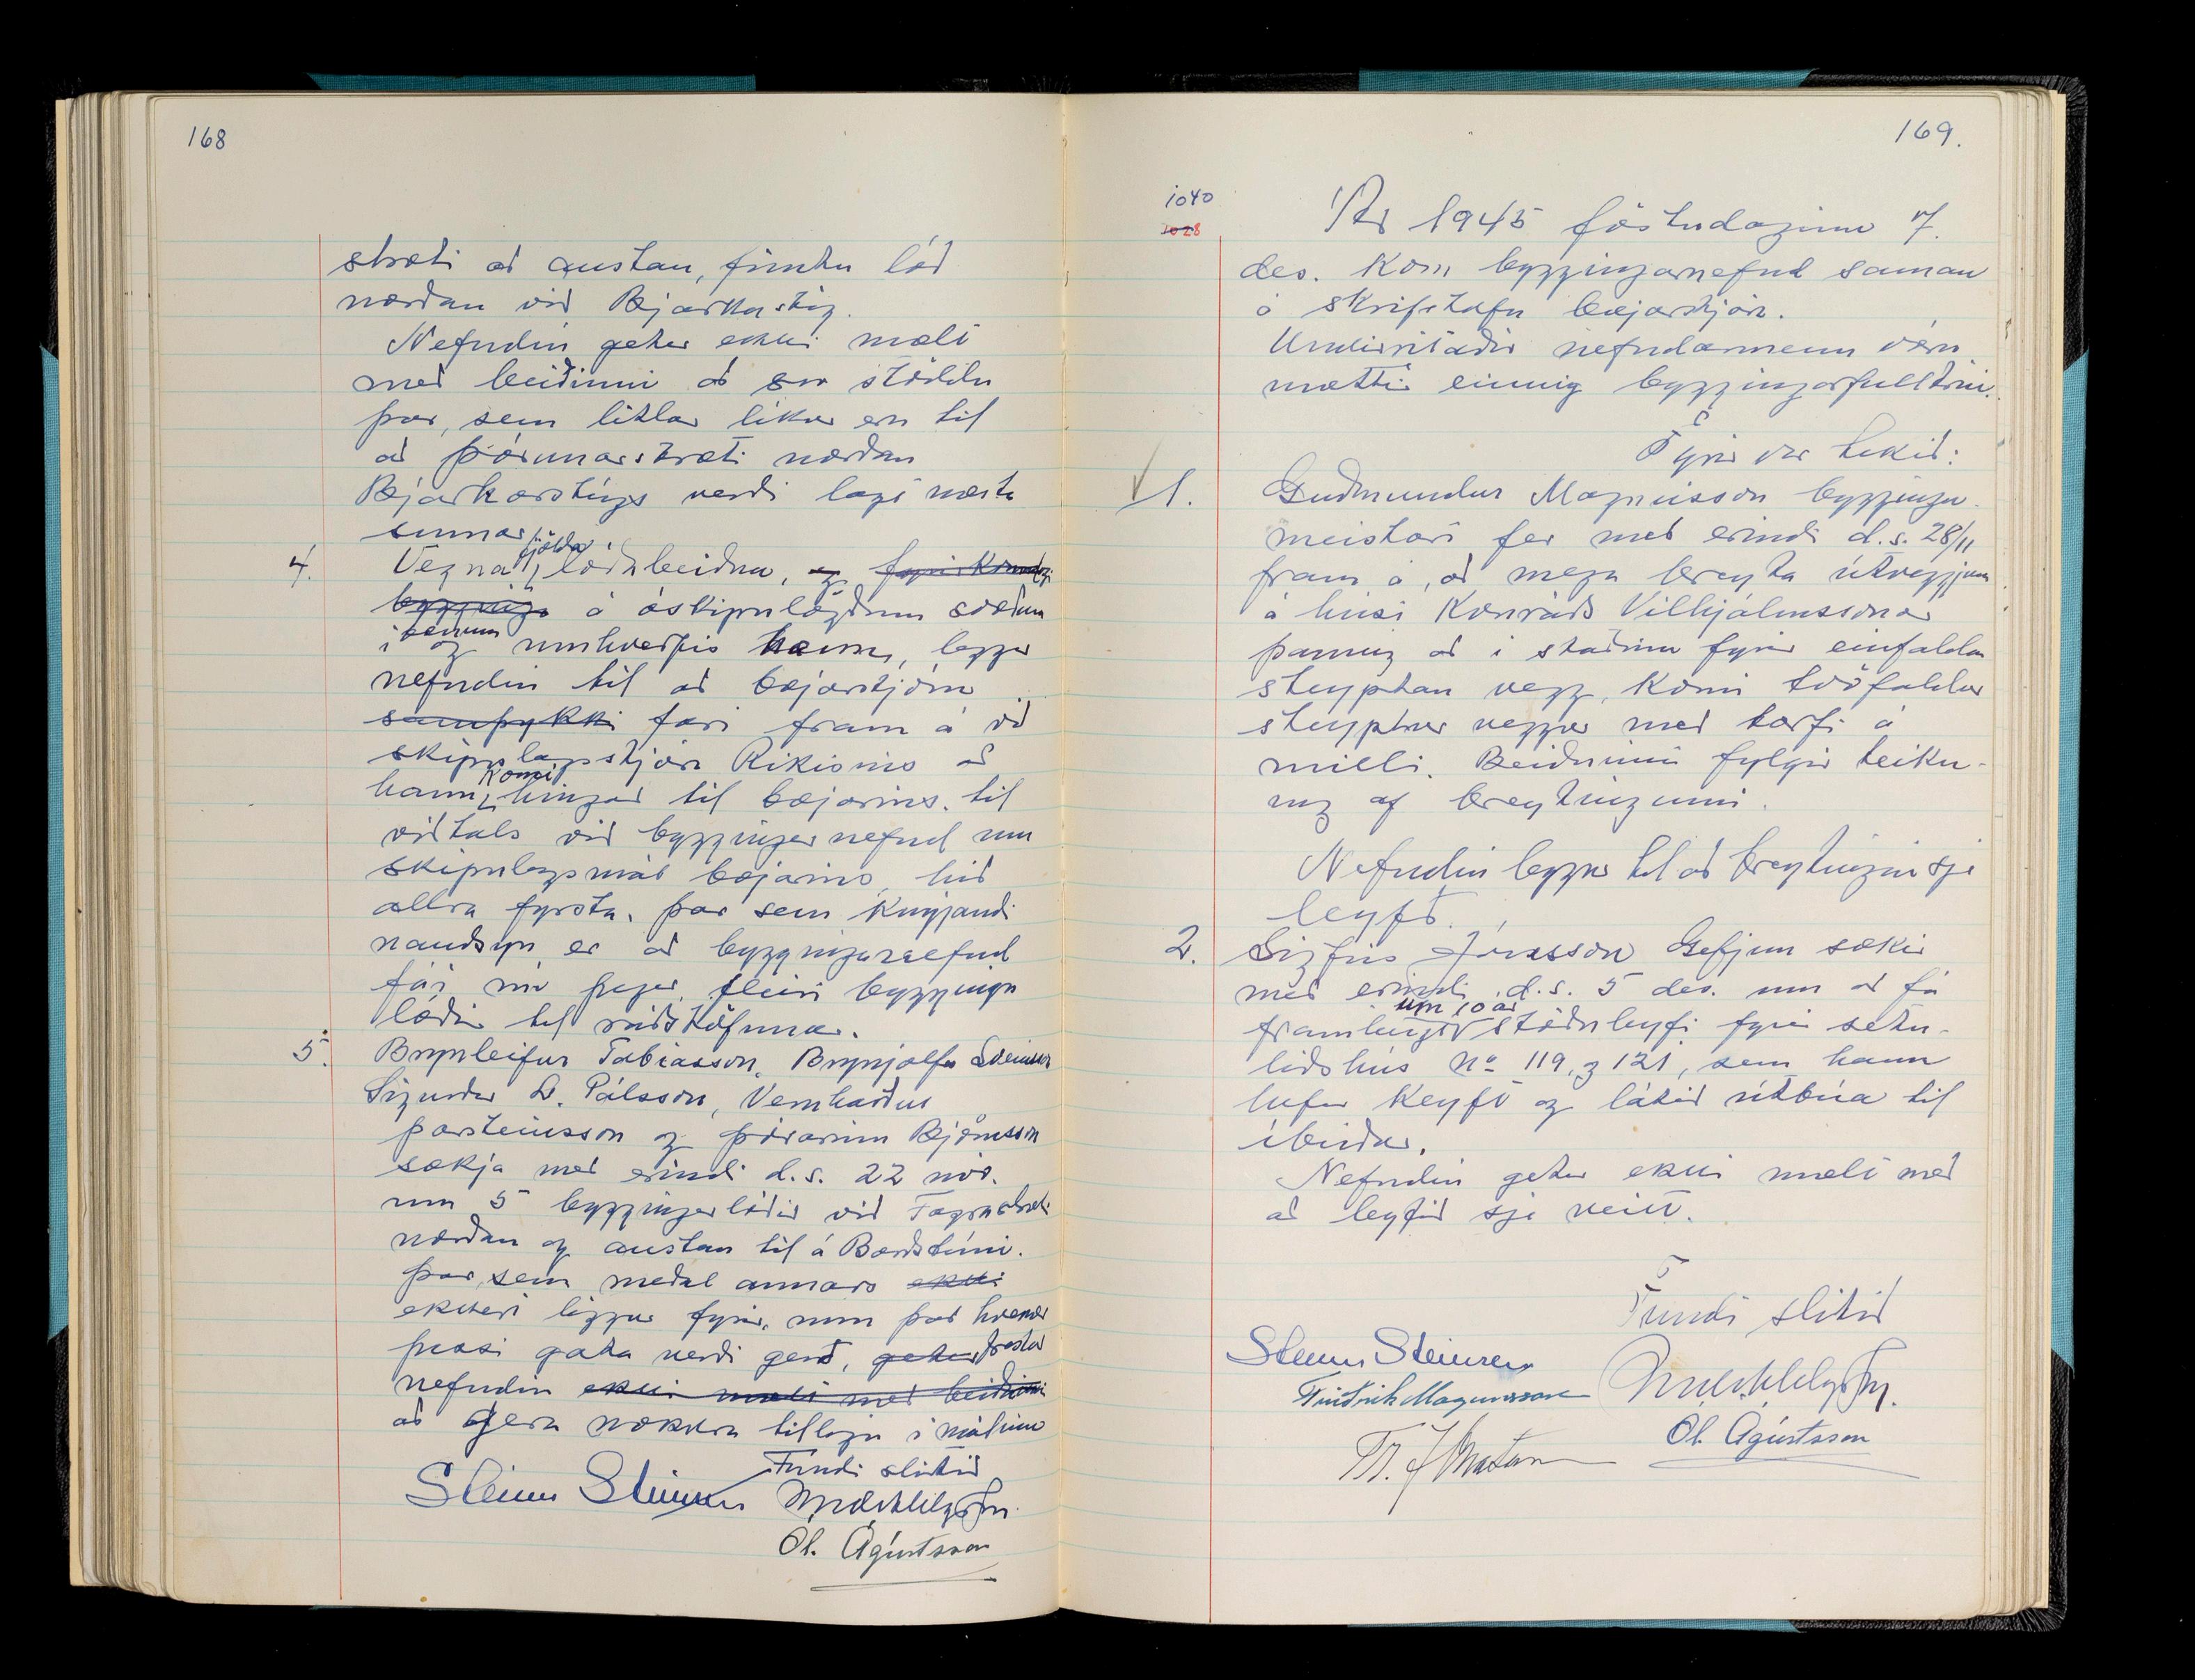 168
stræti að austan, fimtu lóð
norðan við Bjarkastíg.
Nefndin getur ekki mælt
með beiðninni að svo stöddu
þar, sem litlar líkur eru til
að Þórunnarstræti norðan
Bjarkarstígs verði lagt næsta
sumar
4. Vegna fjölda lóðabeiðna, og fyrirhugaðra
bygginga á óskipulögðum svæðum
í bænum og umhverfis hann, leggur
nefndin til að bæjarstjórn
samþykki fari fram á við
skipulagsstjóra Ríkisins að
hann komi hingað til bæjarins til
viðtals við byggingarnefnd um
skipulagsmál bæjarins, hið
allra fyrsta, þar sem knýjandi
nauðsyn er að byggingarnefnd
fái nú þegar fleiri bygginga
lóðir til ráðstöfunar.
5. Brynleifur Tobiasson, Brynjólfur Sveinsson
Sigurður L. Pálsson, Vernharður
Þorsteinsson og Þórarinn Björnsson
sækja með erindi d.s. 22 nóv.
um 5 byggingarlóðir við Fagrastræti
norðan og austan til á Barðstúni.
Þar, sem meðal annars ekki
ekkert liggur fyrir, um það hvenær
þessi gata verði gerð, getur frestar
nefndin ekki mælt með beiðninni
að gera nokkra tillögu í málinu
Fundi slitið
Steinn Steinsen
Ól. Ágústsson
169.
1040
1028
Ár 1945 föstudaginn 7.
des. kom byggingarnefnd saman
á skrifstofu bæjarstjóra.
Undirritaðir nefndarmenn voru
mættir einnig byggingarfulltrúi.
Fyrir var tekið:
1. Guðmundur Magnússon bygginga
meistari fer með erindi d.s. 28/11
fram á, að mega breyta útveggjum
á húsi Konráðs Vilhjálmssonar
þannig að í staðinn fyrir einfaldan
steyptan vegg, komi tvöfaldur
steyptur veggur með torfi á
milli. Beiðninni fylgir teikn-
ing af breytingunni.
Nefndin leggur til að breytingin sje
leyfð.
2. Sigfús Jónsson Gefjun sækir
með erindi d.s. 5 des. um að fá
framlengt um 10 ár stöðuleyfi fyrir setu-
liðshús No 119 og 121, sem hann
hefur keyft og látið útbúa til
íbúðar.
Nefndin getur ekki mælt með
að leyfið sje veitt.
Fundi slitið
Steinn Steinsen
Friðrik Magnússon
Ól. Ágústsson